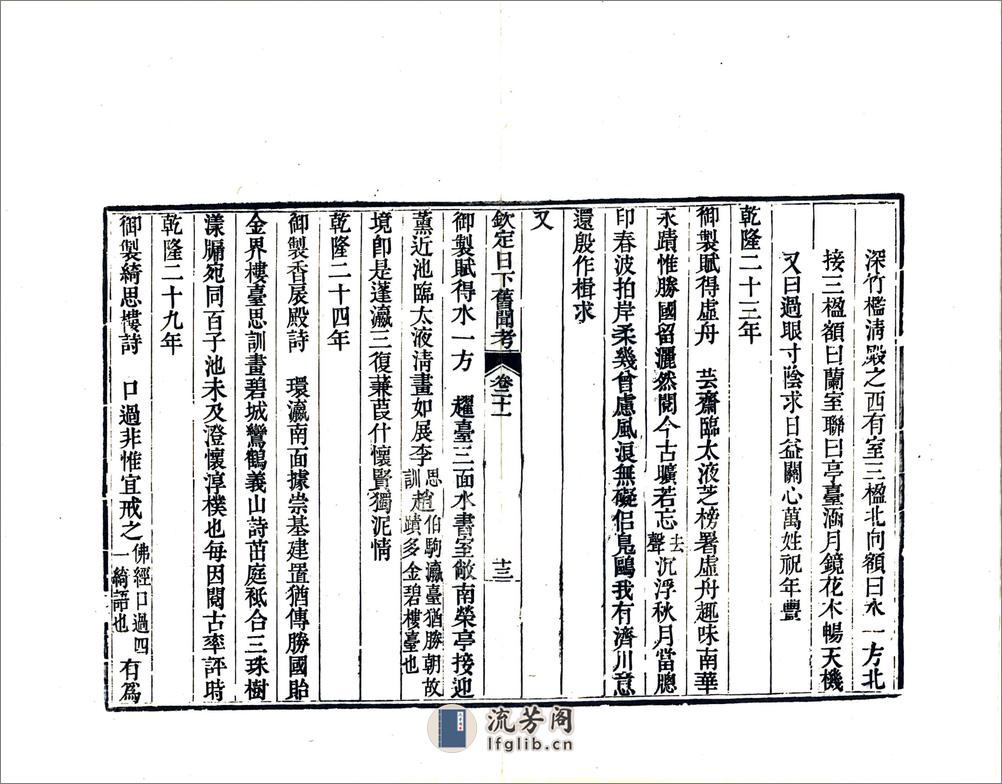 深竹檻清殿之西有室三楹北向額曰水一方北
接三楹額曰蘭室聯曰亭臺涵月鏡花木暢天機
又曰過眼寸陰求日益關心萬姓祝年豐
乾隆二十三年
御製賦得虛舟 芸齋臨太液芝榜署虛舟趣味南華
永蹟惟勝國留灑然閱今古曠若忘去聲沉浮秋月當牕
印春波拍岸柔幾曾慮風浪無礙侶鳧鷗我有濟川意
還殷作楫求
又
欽定日下舊聞考 卷二十一 十三
御製賦得水一方 趯臺三面水書室敞南榮亭接迎
薰近池臨太液淸畫如展李思訓趙伯駒瀛臺猶勝朝故蹟多金碧樓臺也
境卽是蓬瀛三復蒹葭什懷賢獨泥情
乾隆二十四年
御製香扆殿詩 環瀛南面據崇基建置猶傳勝國貽
金界樓臺思訓畫碧城鸞鶴義山詩苗庭祗合三珠樹
漾牖宛同百子池未及澄懷淳樸也每因閱古率評時
乾隆二十九年
御製綺思樓詩 口過非惟宜戒之佛經口過四一綺語也有爲
流芳阁
lfglib.cn